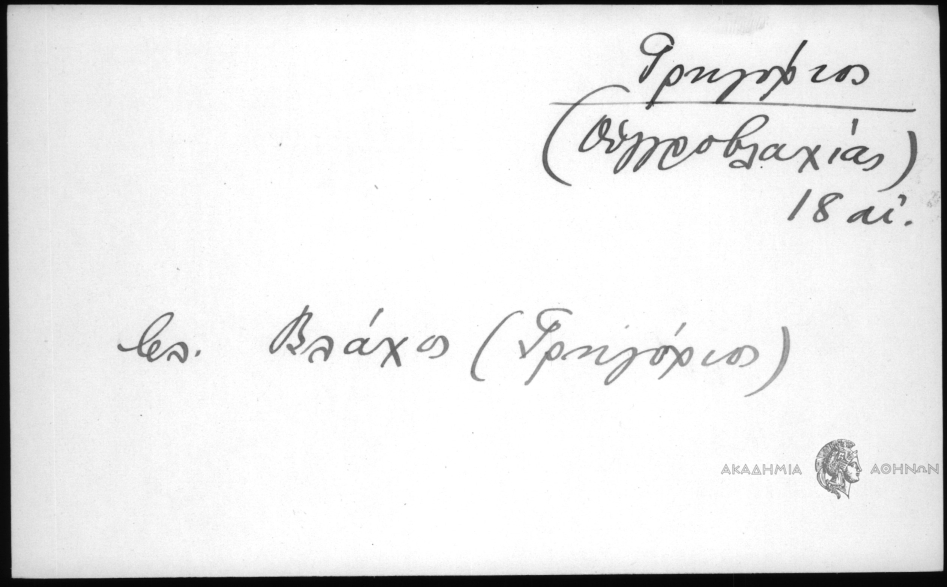 Γρηγόριος
(Οὑγγροβλαχίας)
18 αἰ.
βλ. Βλάχος (Γρηγόριος)
ΑΚΑΔΗΜΙΑ ΑΘΗΝΩΝ